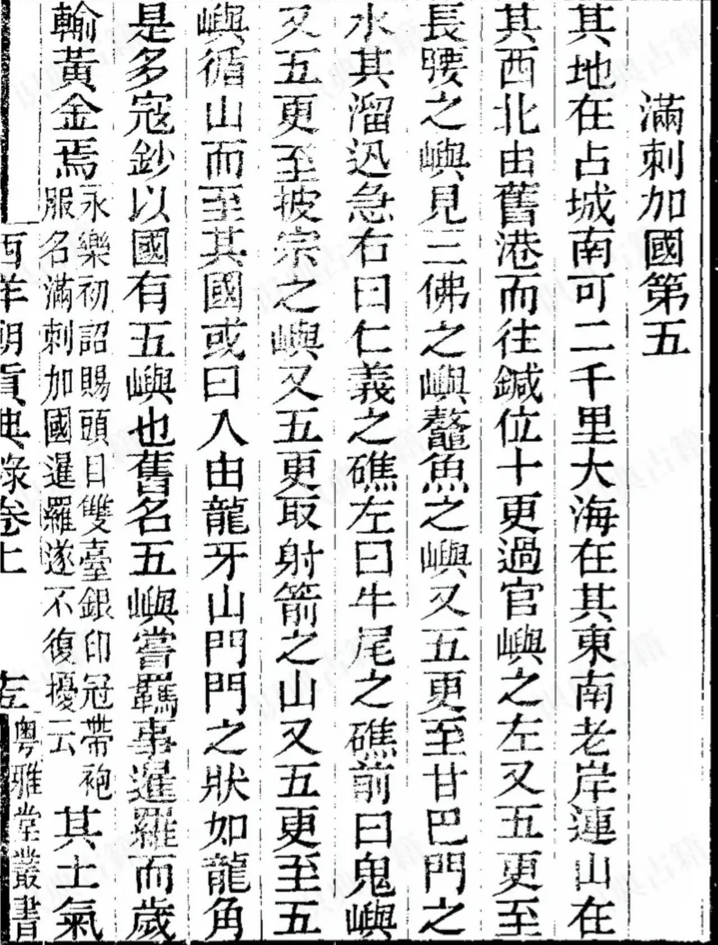 滿剌加國第五
其地在占城南可二千里大海在其東南老岸連山在
其西北由舊港而往鍼位十更過官嶼之左又五更至
長腰之嶼見三佛之嶼鼇魚之嶼又五更至甘巴門之
水其溜迅急右曰仁義之礁左曰牛尾之礁前曰鬼嶼
又五更至披宗之嶼又五更取射箭之山又五更至五
嶼循山而至其國或曰入由龍牙山門門之狀如龍角
是多寇鈔以國有五嶼也舊名五嶼嘗羈事暹羅而歲
輸黃金焉
永樂初詔賜頭目雙臺銀印冠帶袍
服名滿剌加國暹羅遂不復擾云
其土氣
西洋朝貢典錄卷上
粵雅堂叢書